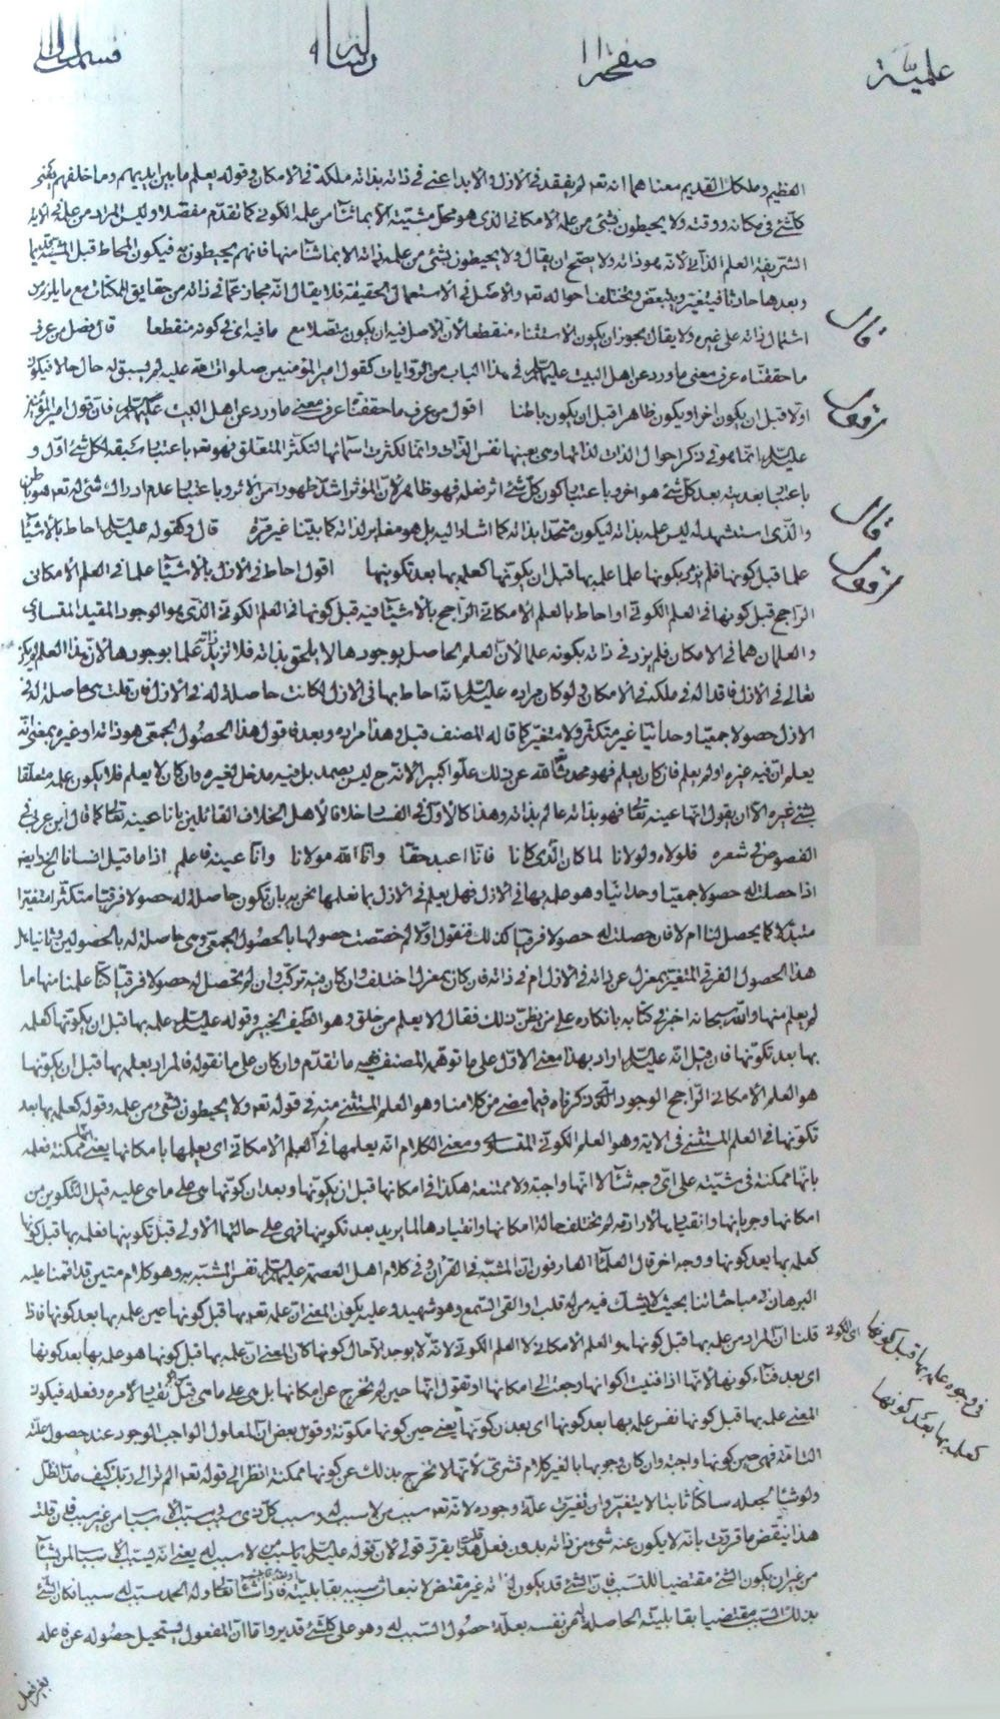 علميّة صفحة ١١ رسالة ٩ قسمة اول
العظيم وملكك القديم معناهما انه تعالى لم يفقد في الازل والابد اعني في ذاته بذاته ملكه في الامكان وقوله يعلم ما بين ايديهم وما خلفهم يعني
كل شئ في مكانه ووقته ولا يحيطون بشئ من علمه الامكاني الذي هو محل مشيته الا بما شاء من علمه الكوني كما تقدم مفصلا وليس المراد من علمه في الاية
الشريفة العلم الذاتي لانه هو ذاته ولا يصح ان يقال ولا يحيطون بشئ من علمه ذاته الا بما شاء منها فانهم يحيطون به فيكون المحاط قبل المشية
وبعدها حادثا فيتغير ويتبعض وتختلف احواله تعالى والاصل في الاستعمال الحقيقة فلا يقال انه مجاز عما في ذاته من حقايق الممكنات مع ما يلزم من
اشتمال ذاته على غيره ولا يقال يجوز ان يكون الاستثناء منقطعا لان الاصل فيه ان يكون متصلا مع ما فيه اي في كونه منقطعا قال فصل من عرف
قال
ما حققناه عرف معنى ما ورد عن اهل البيت عليهم السلام في هذا الباب من الروايات كقول امير المؤمنين صلوات الله عليه لم يسبق له حال حالا فيكون
اولا قبل ان يكون اخرا ويكون ظاهرا قبل ان يكون باطنا اقول من عرف ما حققنا عرف معنى ما ورد عن اهل البيت عليهم السلام فان قول امير المؤمنين
اقول
عليه السلام انما هو في ذكر احوال الذات لذاتها وهي بعينها نفس الذات وانما تكثرت اسمائها لتكثر المتعلق فهو تعالى باعتبار سبقه لكل شئ اول و
باعتبار بعديته بعد كل شئ هو اخر وباعتبار كون كل شئ اثر فعله فهو ظاهر لان المؤثر اشد ظهورا من الاثر وباعتبار عدم ادراك شئ له تعالى هو باطن
والذي استشهد له ليس علمه بذاته ليكون متحدا بذاته كما اشار اليه بل هو مغاير لذاته كما بينا غير مرة قال وكقوله عليه السلام احاط بالاشياء
قال
علما قبل كونها فلم يزدد بكونها علما علمه بها قبل ان يكونها كعلمه بها بعد تكوينها اقول احاط في الازل بالاشياء علما في العلم الامكاني
اقول
الراجح قبل كونها في العلم الكوني او احاط بالعلم الامكاني الراجح بالاشياء فيه قبل كونها في العلم الكوني الذي هو الوجود المقيد المتساوى
والعلمان هما في الامكان فلم يزدد في ذاته بكونه علما لان العلم الحاصل بوجودها لا يلحق بذاته فلا تزيد ذاته علما بوجودها لان هذا العلم لم يكن
تعالى في الازل فاقدا له في ملكه في الامكان ولو كان مراده عليه السلام بانه احاط بها في الازل لكانت حاصلة له في الازل فان قلت هي حاصلة له في
الازل حصولا جمعيا وحدانيا غير متكثر ولا متغير كما قاله المصنف قبل وهذا مراده وبعد فاقول هذا الحصول الجمعي هو ذاته او غيره بمعنى انه
يعلم ان فيه غيره او لم يعلم فان كان يعلم فهو محدث تعالى الله عن ذلك علوا كبيرا لانه ح ليس بصمد بل فيه مدخل لغيره وان كان لا يعلم فلا يكون علمه متعلقا
بشئ غيره الا ان يقول انها عينه تعالى فهو بذاته عالم بذاته وهذا كالاول في الفساد خلافا لاهل الخلاف القائلين بانا عينه تعالى كما قال ابن عربي في
الفصوص في شعره فلولاه ولولانا لما كان الذي كانا فانا اعبد حقا وانا الله مولانا وانا عينه فاعلم اذا ما قيل انسانا الخ وايضا
اذا حصلت له حصولا جمعيا وحدانيا وهو علمه بها في الازل فهل يعلم في الازل بما نعلمها نحن به بان تكون حاصلة له حصولا فرقيا متكثرا متغيرا
متبدلا كما يحصل لنا ام لا فان حصلت له حصولا فرقيا كذلك فنقول اولا لم خصصت حصولها بالحصول الجمعي وهي حاصلة له بالحصولين وثانيا
هذا الحصول الفرقي المتغير بمعزل عن ذاته في الازل ام في ذاته فان كان بمعزل اختلف وان كان فيه تركب وان لم تحصل له حصولا فرقيا كنا علمنا منها ما
لم يعلم منها والله سبحانه اخبر في كتابه بانكاره على من يظن ذلك فقال الا يعلم من خلق وهو اللطيف الخبير وقوله عليه السلام علمه بها قبل ان يكونها كعلمه
بها بعد تكونها فان قيل انه عليه السلام اراد بهذا معنى الاول على ما توهمه المصنف ففيه ما تقدم وان كان على ما نقوله فالمراد بعلمه بها قبل ان يكونها
هو العلم الامكاني الراجح الوجود الذي ذكرناه فيما مضى من كلامنا وهو العلم المستثنى منه في قوله تعالى ولا يحيطون بشئ من علمه وقوله كعلمه بها بعد
تكونها في العلم المستثنى في الاية وهو العلم الكوني المتساوي ومعنى الكلام انه يعلمها في العلم الامكاني اي يعلمها بامكانها يعني انها ممكنة فعلمه
بانها ممكنة في مشيته على اي وجه شاء لا انها واجبة ولا ممتنعة هكذا في امكانها قبل ان يكونها وبعد ان كونها هي على ما هي عليه قبل التكوين من
امكانها وجريانها وانقيادها لارادته لم تختلف حالة امكانها وانقيادها لما يريد بعد تكوينها فهي على حالتها الاولى قبل تكوينها فعلمه بها قبل كونها
كعلمه بها بعد كونها ووجه اخر قال العلماء العارفون ان المشبه في القرآن وفي كلام اهل العصمة عليهم السلام نفس المشبه به وهو كلام متين قد اقمنا عليه
البرهان في مباحثاتنا بحيث لا يشك فيه من له قلب او القى السمع وهو شهيد وعليه يكون المعنى ان علمه تعالى بها قبل كونها عين علمه بها بعد كونها فاذا
قلنا ان المراد من علمه بها قبل كونها هو العلم الامكاني لا العلم الكوني لانه لا يوجد الا حال كونها كان المعنى ان علمه بها قبل كونها هو علمه بها بعد كونها
اي الكوني
في وجوه علمه بها قبل كونها
كعلمه بها بعد كونها
اي بعد فناء كونها لانها اذا فنيت اكوانها رجعت الى امكانها او تقول انها حين لم تخرج عن امكانها بل هي على ما هي قبل من انقيادها لامره وفعله فيكون
المعنى علمه بها قبل كونها نفس علمه بها بعد كونها اي بعد ان كونها يعني حين كونها مكونة وقول بعض ان المعلول الواجب الوجود عند حصول علته
التامة فهي حين كونها واجبة وان كان وجوبها بالغير كلام قشري لانها لا تخرج بذلك عن كونها ممكنة انظر الى قوله تعالى الم تر الى ربك كيف مد الظل
ولو شاء لجعله ساكنا ثابتا لا يتغير وان تغيرت علة وجوده لانه تعالى سبب من لا سبب له وسبب كل ذي سبب ومسبب الاسباب من غير سبب فان قلت
هذا ينقض ما قررت بانه لا يكون عنه شئ من ذاته بدون فعل قلت هذا يقرر قولي لان قوله عليه السلام يا سبب من لا سبب له يعني انه يسبب الاسباب لمن يشاء
من غير ان يكون الشئ مقتضيا للتسبب فان الشئ قد يكون لذاته غير مقتض لانبعاث سببه بقابليته فاذا شاء تعالى وله الحمد سبب له سببا فكان الشئ
بذلك السبب مقتضيا بقابليته الحاصلة له من نفسه بعلة حصول السبب له وهو على كل شئ قدير واما ان المفعول يستحيل حصوله عن فاعله
بغير فعل